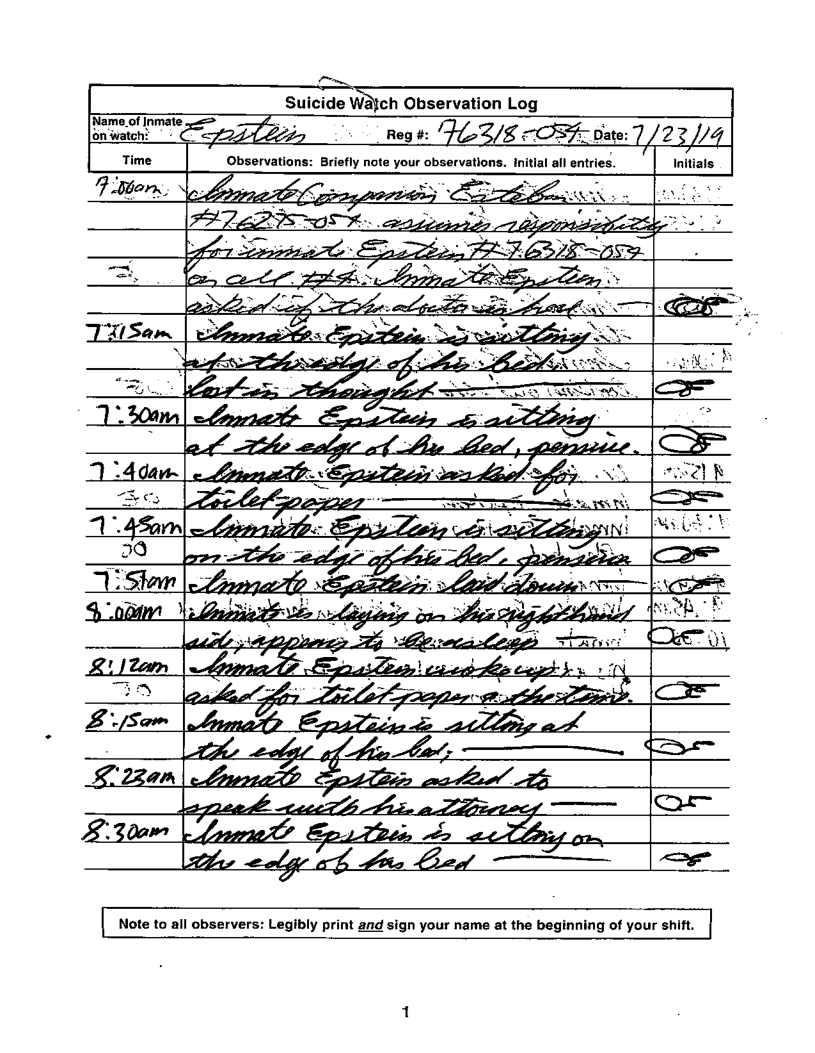 Suicide Watch Observation Log
Name of Inmate on watch: Epstein Reg #: 76318-054 Date: 7/23/19
Time Observations: Briefly note your observations. Initial all entries. Initials
7:00am Inmate Companion Esteban
#76275-054 assumes responsibility
for inmate Epstein #76318-054
on cell #4. Inmate Epstein
asked if the doctor is here
7:15am Inmate Epstein is sitting
at the edge of his bed
lost in thought
7:30am Inmate Epstein is sitting
at the edge of his bed, pensive.
7:40am Inmate Epstein asked for
toilet-paper
7:45am Inmate Epstein is sitting
on the edge of his bed, pensive
7:51am Inmate Epstein laid down
8:00am Inmate is laying on his right hand
side, appears to be asleep
8:12am Inmate Epstein woke up
asked for toilet-paper a the time.
8:15am Inmate Epstein is sitting at
the edge of his bed;
8:23am Inmate Epstein asked to
speak with his attorney
8:30am Inmate Epstein is sitting on
the edge of his bed
Note to all observers: Legibly print and sign your name at the beginning of your shift.
1